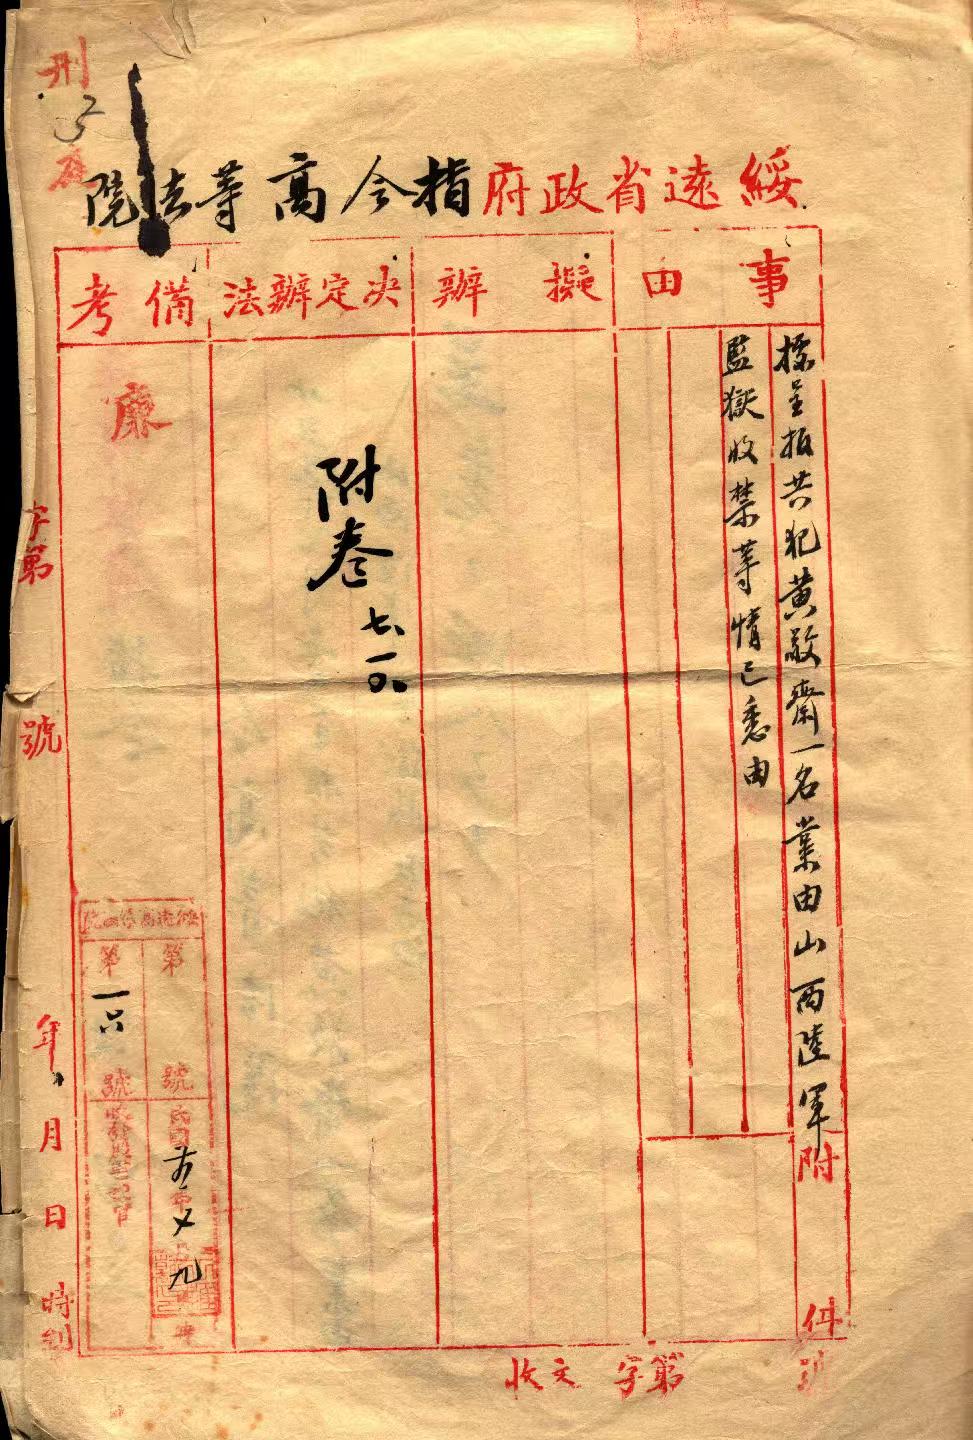 刑
綏遠省政府指令高等法院
事由
擬辦
決定辦法
備考
據呈报共犯黄敬齋一名業由山西陸軍
監獄收禁等情已悉由
附件
附卷
七、一〇、
廉
綏遠高等法院
第 號
第一 號
民國 年 九
字第 號
年 月 日 時到
收文 字第 號